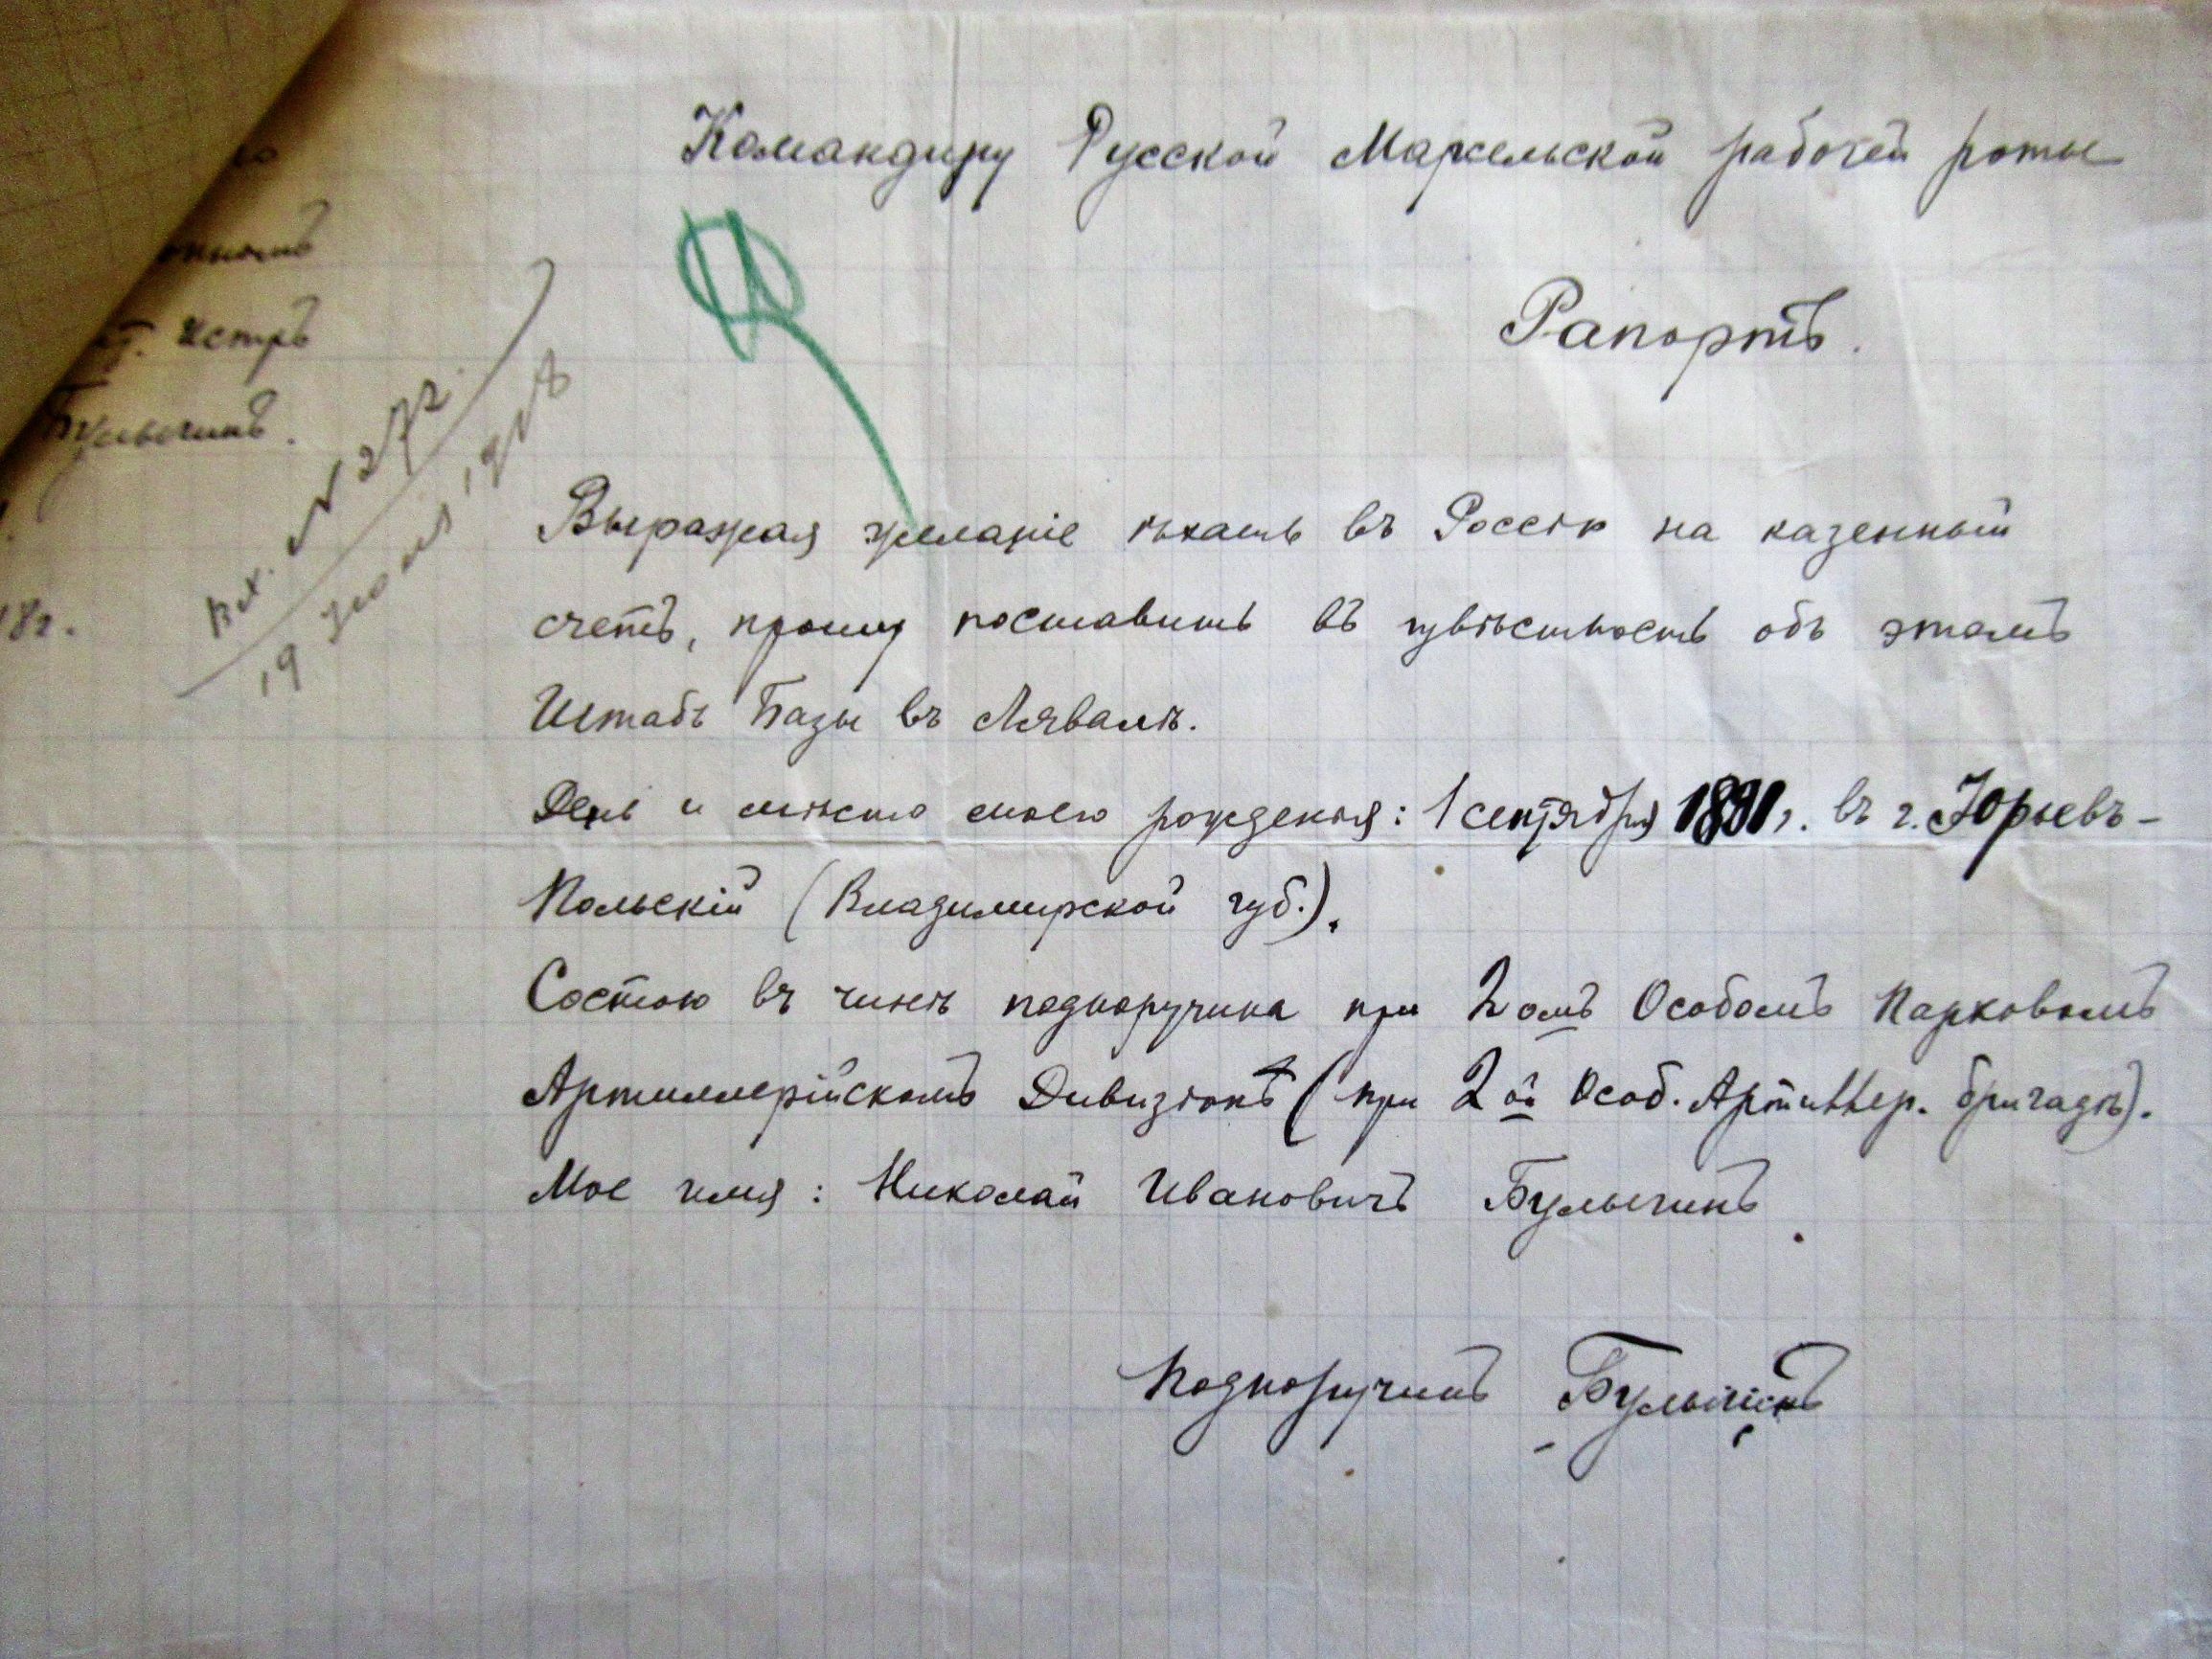 Командиру Русской Марсельской рабочей роты
Рапортъ.
онностъ
Истръ
Булыгинъ.
18г.
Вх. № 272.
19 Июля 1918
Выражая желаніе ѣхать въ Россію на казенный
счетъ, прошу поставить въ извѣстность объ этомъ
Штабъ Базы въ Лявалѣ.
День и мѣсто моего рожденія: 1 сентября 1891 г. въ г. Юрьевъ-
Польскій (Владимирской губ.).
Состою въ чинѣ подпоручика при 2омъ Особомъ Парковомъ
Артиллерійскомъ Дивизіонѣ (при 2ой Особ. Артиллер. бригадѣ).
Мое имя: Николай Ивановичъ Булыгинъ.
Подпоручикъ Булыгинъ